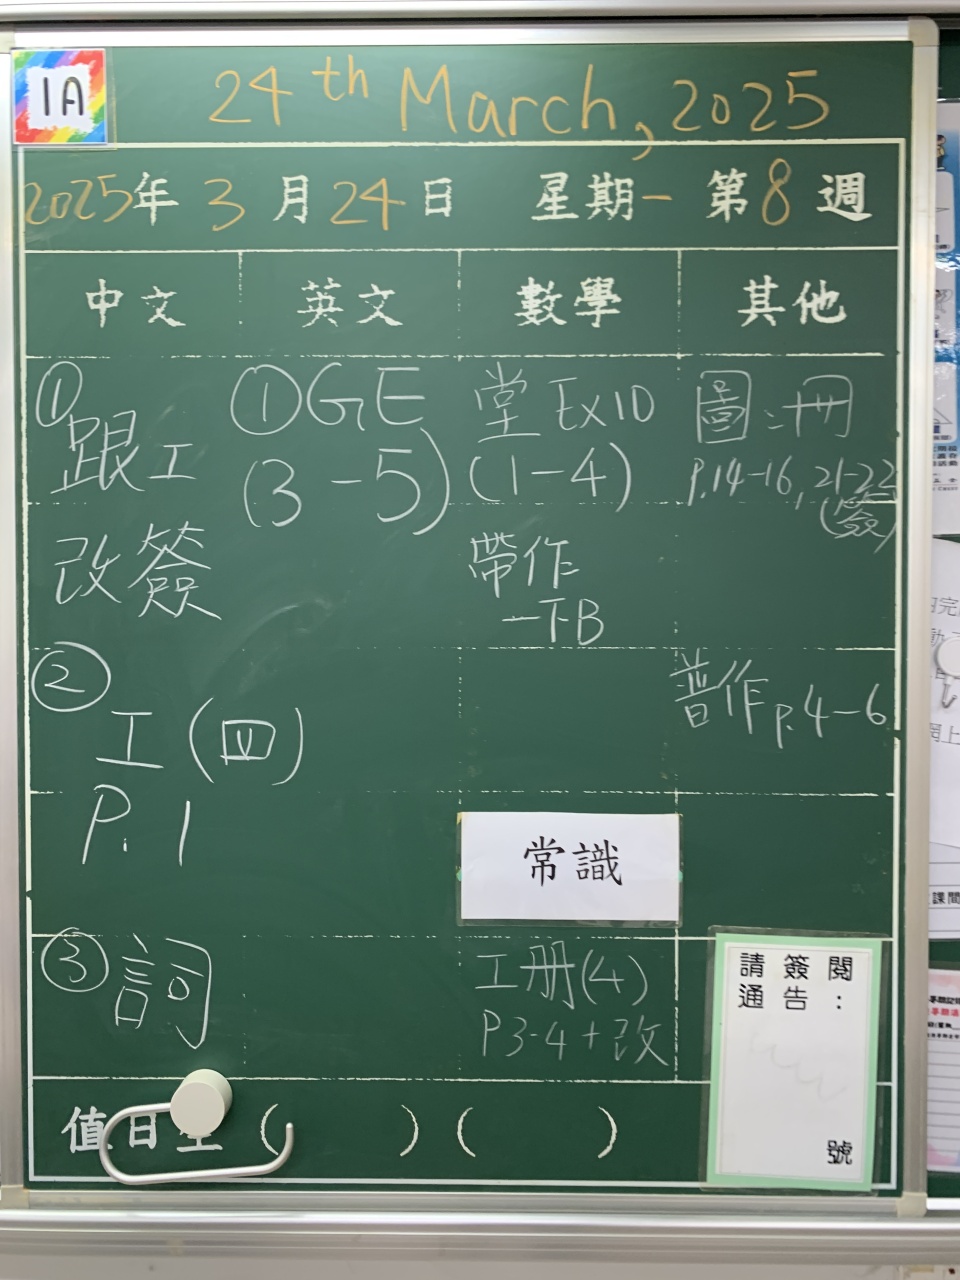 1A
24th March, 2025
2025年 3月24日 星期一 第8週
中文 英文 數學 其他
① 跟工
改簽
② 工(四)
P.1
③ 詞
① GE
(3-5)
堂 Ex10
(1-4)
帶作
一下B
常識
工冊(4)
P3-4+改
圖:冊
P.14-16, 21-22
(簽)
普作 p.4-6
請簽閱
通告:
號
值日生 ( ) ( )
課間